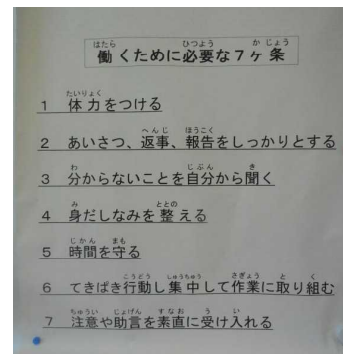 働くために必要な7ヶ条
1 体力をつける
2 あいさつ、返事、報告をしっかりとする
3 分からないことを自分から聞く
4 身だしなみを整える
5 時間を守る
6 てきぱき行動し集中して作業に取り組む
7 注意や助言を素直に受け入れる